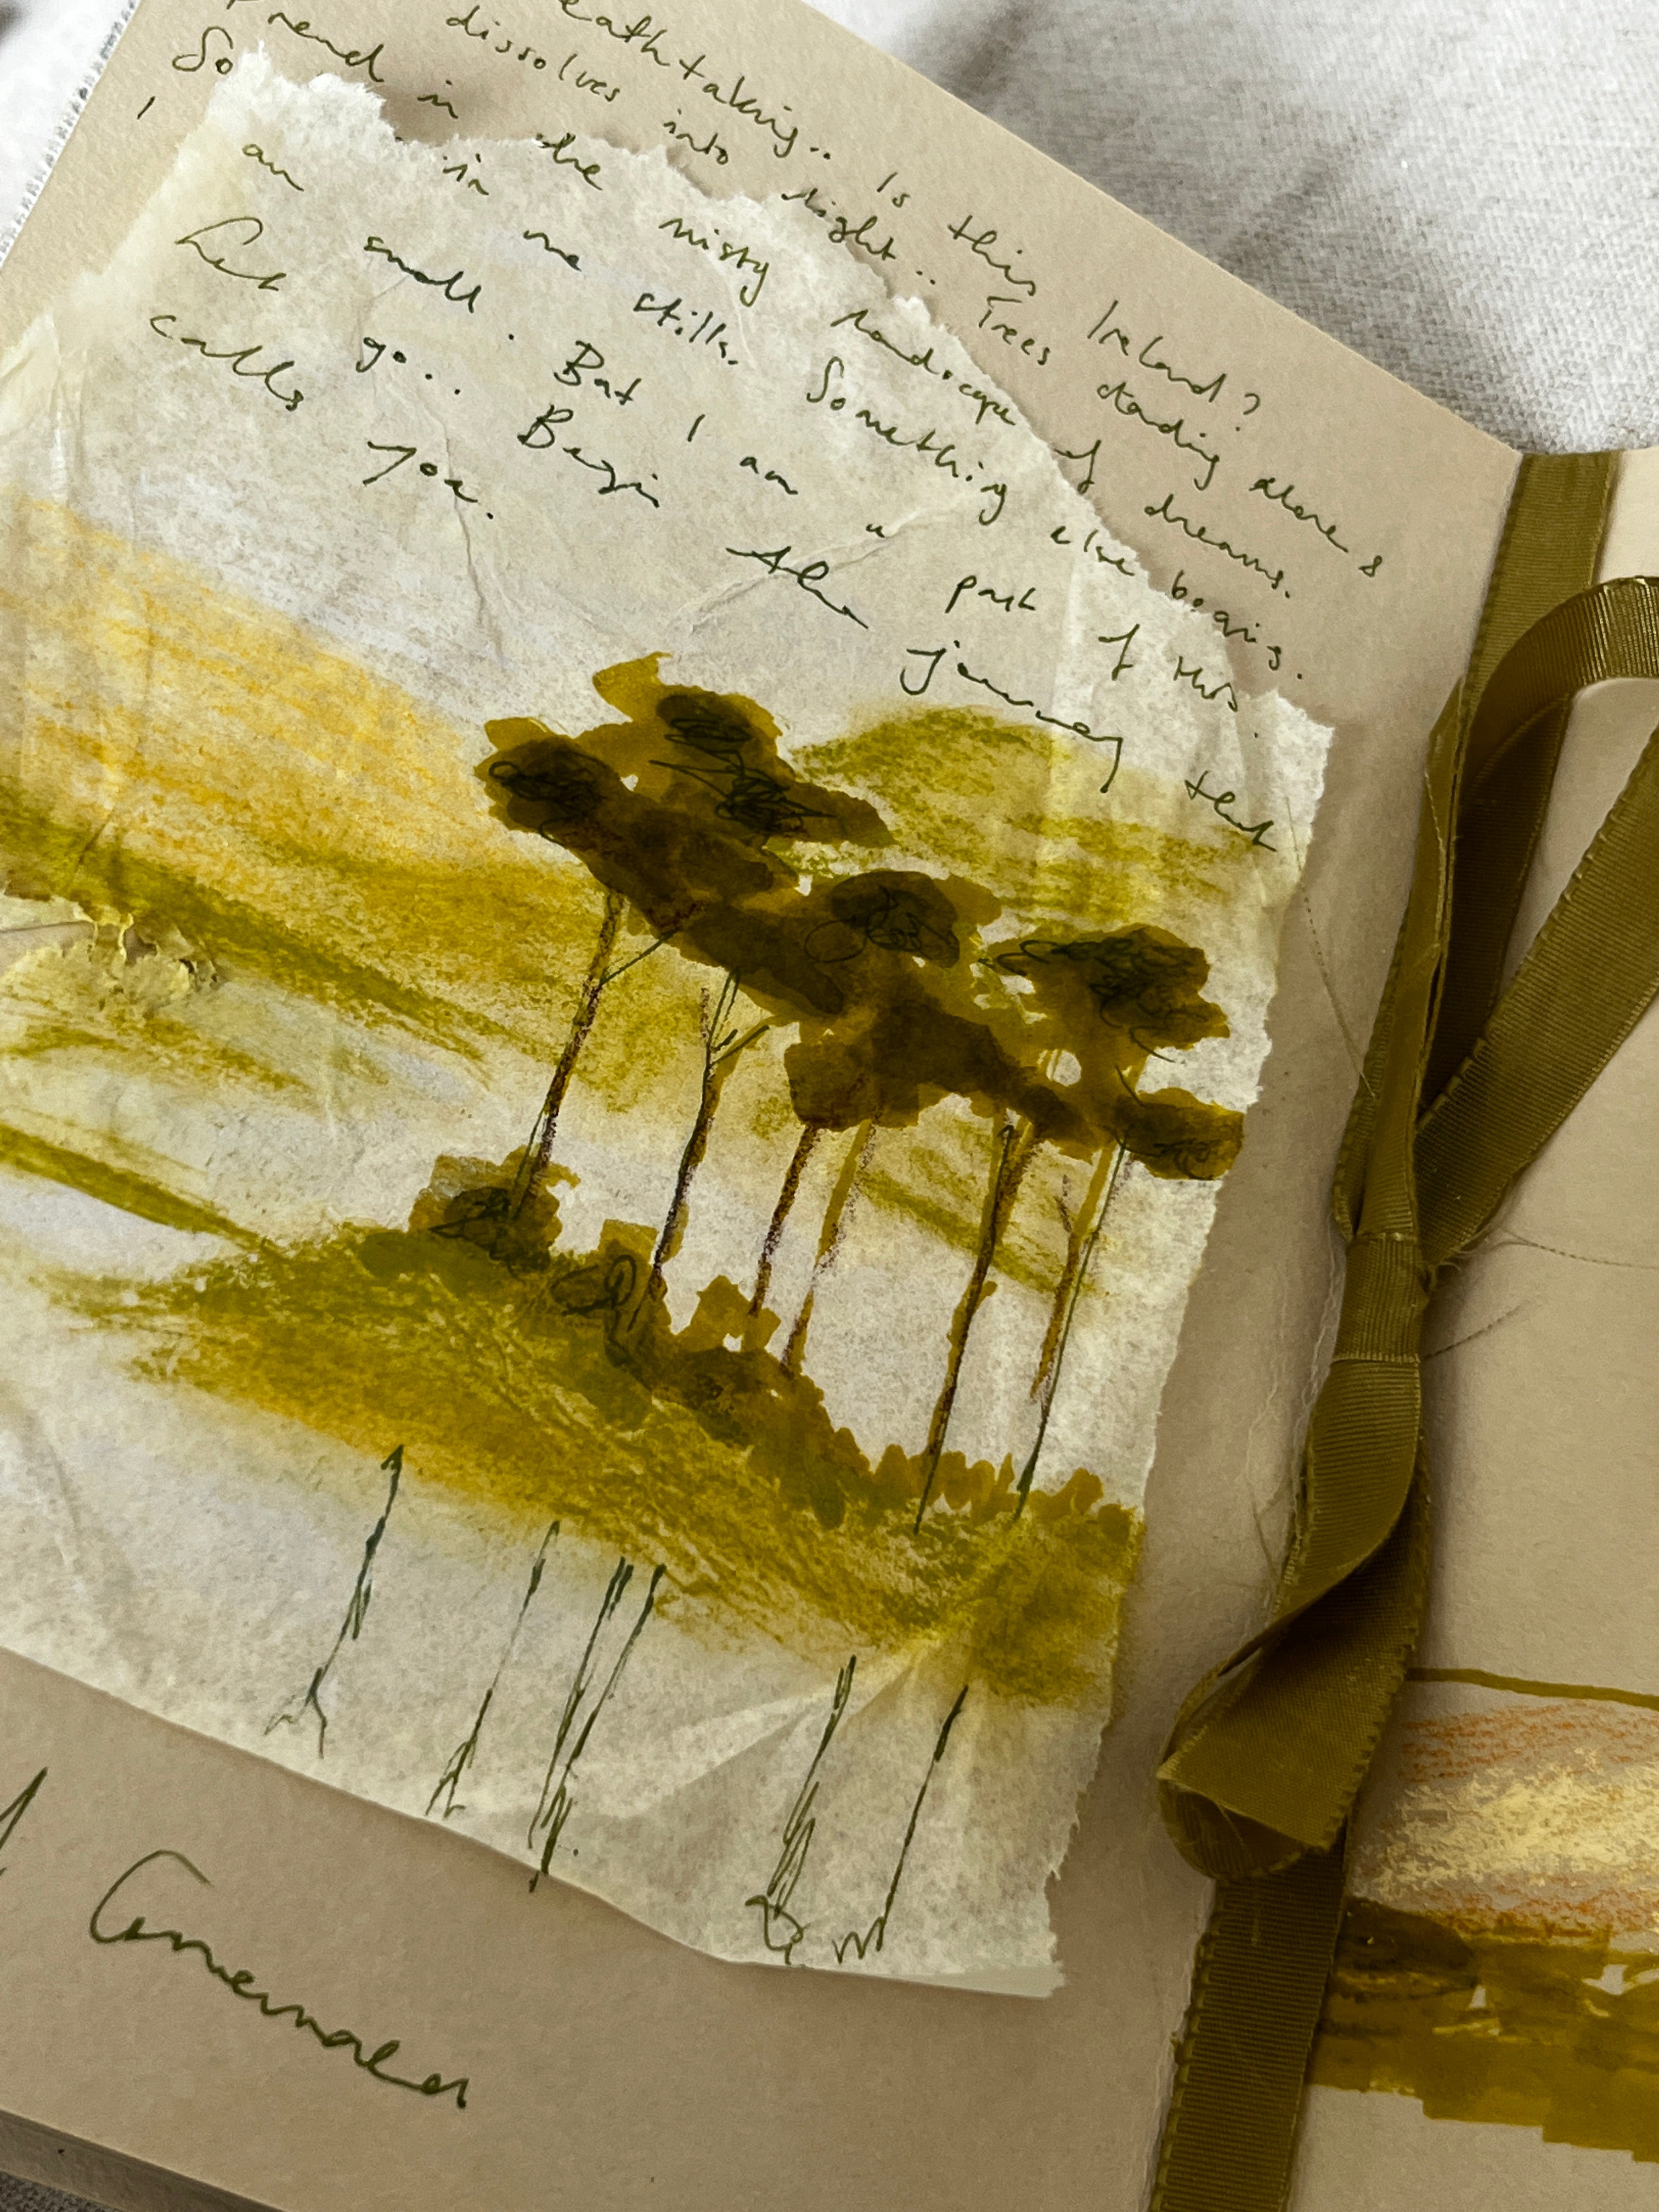 eathtaking.. Is this Ireland?
dissolves into light.. Trees standing alone &
in the misty landscape of dreams.
So in me stills. Something else begins.
I am small. But I am a part of this.
Let go.. Begin the journey that
calls you.
Connemara